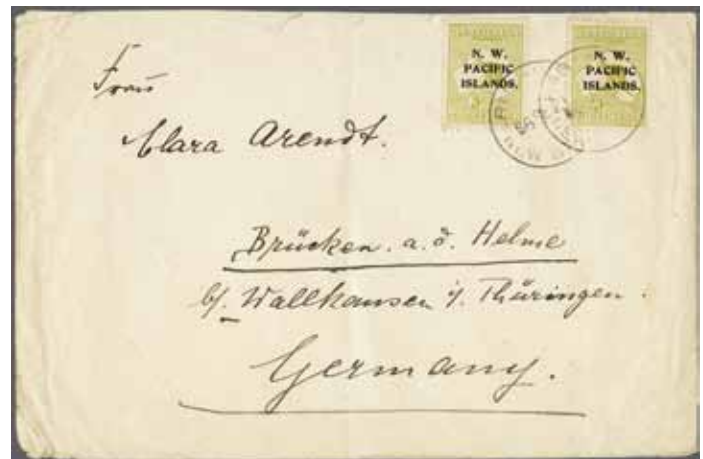 N. W.
PACIFIC
ISLANDS.
N. W.
PACIFIC
ISLANDS.
Frau
Clara Arendt.
Brücken. a. d. Helme
b/. Wallhausen i/. Thüringen.
Germany.